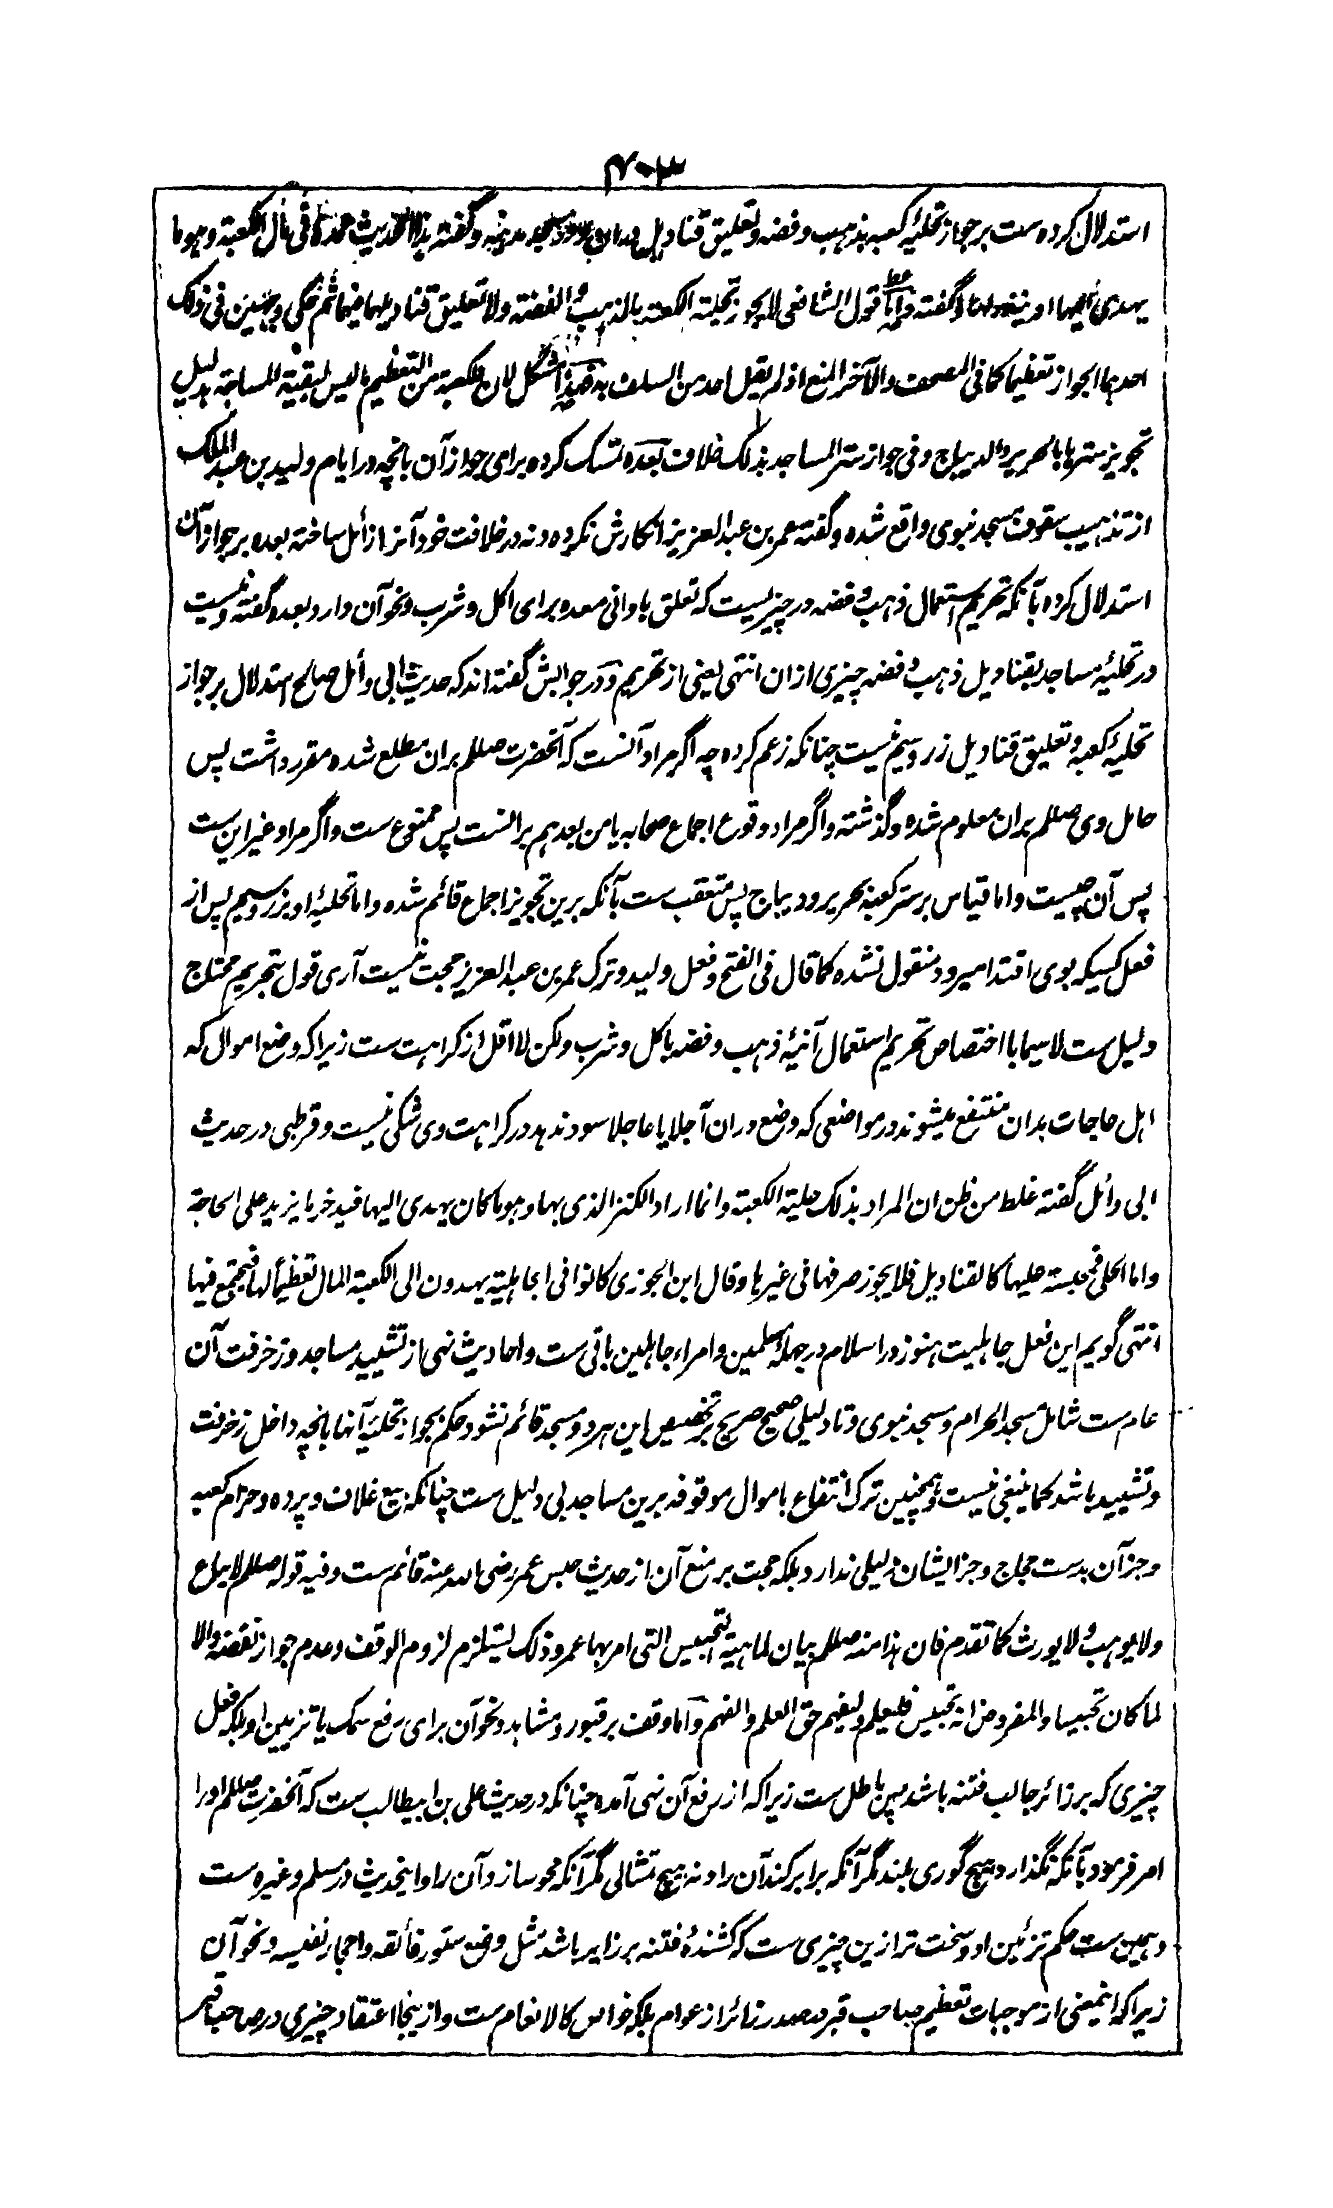 ۷۰۳
استدلال کرده ست بر جواز تحلیهٔ کعبه بذهب و فضه و تعلیق قنادیل مدینه و گفته هذا الحدیث عمدة فی مال الکعبة و هو ما
یهدی الیها او ینذر لها گفته و اما قول الشافعی لا یجوز تحلیة الکعبة بالذهب و الفضة و لا تعلیق قنادیلهما فیها ثم حکی وجهین فی ذلک
احدهما الجواز تعظیما کما فی المصحف و الآخر المنع اذ لم یقل احد من السلف به فهذا مشکل لان للکعبة من التعظیم ما لیس لبقیة المساجد بدلیل
تجویز سترها بالحریر و الدیباج و فی جواز ستر المساجد بذلک خلاف بعده تمسک کرده برای جواز آن بانچه در ایام ولید بن عبد الملک
از تذهیب سقوف مسجد نبوی واقع شده و گفته عمر بن عبد العزیز انکارش نکرده و نه در خلافت خود آنرا زائل ساخته بعده بر جواز آن
استدلال کرده بآنکه تحریم استعمال ذهب و فضه در چیزیست که تعلق باوانی معده برای اکل و شرب و نحو آن دارد بعده گفته و نیست
در تحلیهٔ مساجد بقنادیل ذهب و فضه چیزی ازان انتهی یعنی از تحریم و در جوابش گفته اند که حدیث ابی وائل صالح استدلال بر جواز
تحلیهٔ کعبه و تعلیق قنادیل زر و سیم نیست چنانکه زعم کرده چه اگر مراد آنست که آنحضرت صللم بران مطلع شده مقرر داشت پس
حامل وی صللم بران معلوم شده و گذشته و اگر مراد وقوع اجماع صحابه یا من بعدهم برانست پس ممنوع ست و اگر مراد غیر این ست
پس آن چیست و اما قیاس بر ستر کعبه بحریر و دیباج پس متعقب ست بآنکه برین تجویز اجماع قائم شده و اما تحلیهٔ او بزر و سیم پس از
فعل کسیکه بوی اقتدا میرود منقول نشده کما قال فی الفتح و فعل ولید و ترک عمر بن عبد العزیز حجت نیست آری قول بتحریم محتاج
دلیل ست لا سیما با اختصاص تحریم استعمال آنیهٔ ذهب و فضه باکل و شرب و لکن لا اقل از کراهت ست زیرا که وضع اموال که
اهل حاجات بدان منتفع میشوند در مواضعی که وضع دران آجلا یا عاجلا سود ندهد در کراهت وی شکی نیست و قرطبی در حدیث
ابی وائل گفته غلط من ظن ان المراد بذلک حلیة الکعبة و انما اراد الکنز الذی بها و هو ما کان یهدی الیها فیدخر ما یزید علی الحاجة
و اما الحلی فمحبسة علیها کالقنادیل فلا یجوز صرفها فی غیرها و قال ابن الجوزی کانوا فی الجاهلیة یهدون الی الکعبة المال تعظیماً لها فیجتمع فیها
انتهی گویم این فعل جاهلیت هنوز در اسلام در جملهٔ مسلمین و امراء جاهلین باقی ست و احادیث نهی از تشیید مساجد و زخرفت آن
عام ست شامل مسجد الحرام و مسجد نبوی و تا دلیلی صحیح صریح بر تخصیص این هر دو مسجد قائم نشود حکم بجواز تحلیهٔ آنها بانچه داخل زخرفت
و تشیید باشد کما ینبغی نیست و همچنین ترک انتفاع باموال موقوفه برین مساجد بی دلیل ست چنانکه بیع غلاف و پرده و حزام کعبه
و جز آن بدست حجاج و جز ایشان دلیلی ندارد بلکه حجت بر منع آن از حدیث حبس عمر رضی الله عنه قائم ست و فیه قوله صللم لا یباع
و لا یوهب و لا یورث کما تقدم فان هذا منه صللم بیان لماهیة التحبیس التی امر بها عمر و ذلک یستلزم لزوم الوقف و عدم جواز نقضه و الا
لما کان تحبیسا و المفروض انه تحبیس فلیعلم و لیفهم حق العلم و الفهم و اما وقف بر قبور و مشاهد و نحو آن برای رفع سمک یا تزیین او بلکه فعل
چیزی که بر زائر جالب فتنه باشد پس باطل ست زیرا که از رفع آن نهی آمده چنانکه در حدیث علی بن ابیطالب ست که آنحضرت صللم او را
امر فرمود بآنکه نگذارد هیچ گوری بلند مگر آنکه برابر کند آن را و نه هیچ تمثالی مگر آنکه محو سازد آن را و اینحدیث در مسلم و غیره ست
و همین ست حکم تزئین او و سخت تر ازین چیزی ست که کشندهٔ فتنه بر زایر باشد مثل وضع ستور فائقه و احجار نفیسه و نحو آن
زیرا که اینمعنی از موجبات تعظیم صاحب قبر در صدر زائر از عوام بلکه خواص کالانعام ست و از ینجا اعتقاد چیزی در صاحب قبر